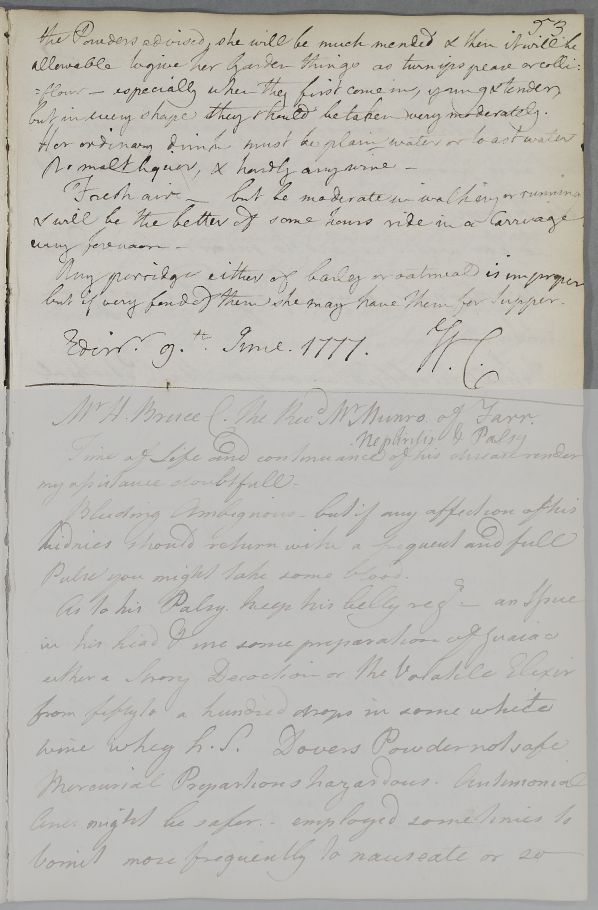 53
the Powders advised, she will be much mended & then it will be
allowable to give her Garden things as turnips pease or colli=
=flour - especially when they first come in, young & tender,
but in every shape they should be taken very moderately.
Her ordinary drink must be plain water or toast water
No malt liquor, & hardly any wine -
Fresh air - but be moderate in walking or running
& will be the better of some hours ride in a Carriage
every forenoon -
Any porridge either of barley or oatmeal is improper
but if very fond of them she may have them for supper.
Edinr. 9.th June. 1777. W. C.
Mr H. Bruce C. The Revd Mr Munro of Farr.
Nephritis & Palsy
Time of Life and continuance of his disease render
my assistance doubtfull -
Bleeding Ambiguous - but if any affection of his
kidnies should return with a frequent and full
Pulse you might take some blood.
As to his Palsy. keep his belly regr - an Issue
in his head & use some preparation of Guaiac
either a Strong Decoction or the Volatile Elixir
from fifty to a hundred drops in some white
wine whey h. S. Dovers Powder not safe
Mercurial Prepartions hazardous. Antimonial
ones might be safer. - employed sometimes to
vomit more frequently to nauseate or so